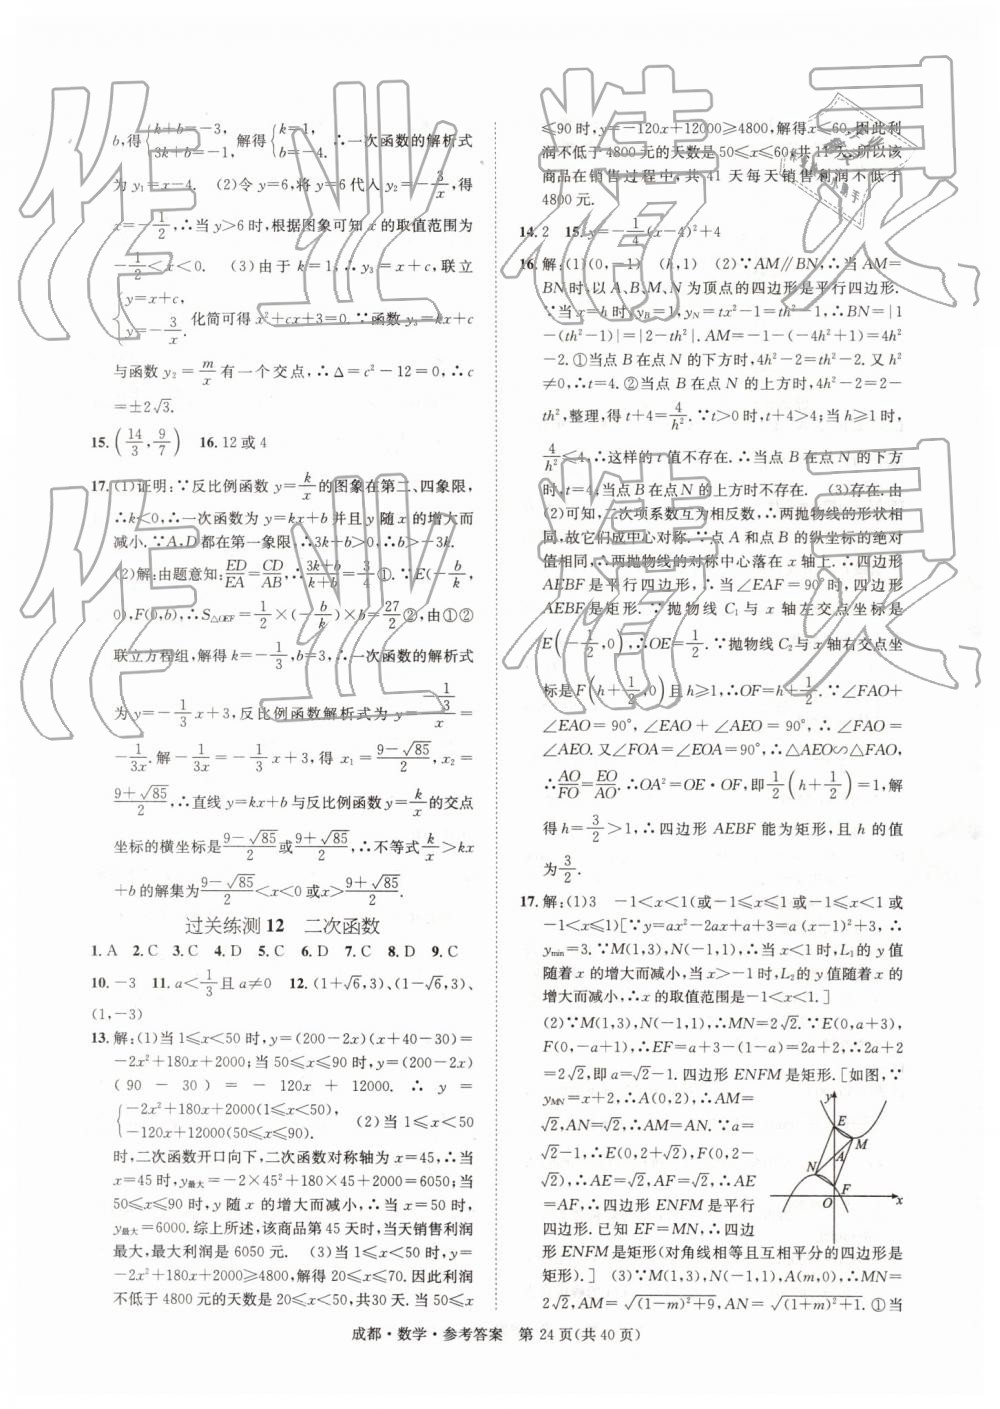 b,得{k+b=-3, 3k+b=-1. 解得{k=1, b=-4. ∴一次函数的解析式
为 y₁=x-4. (2)令 y=6,将 y=6 代入 y₂=-3/x,得
x=-1/2,∴当 y>6 时,根据图象可知 x 的取值范围为
-1/2<x<0. (3)由于 k=1,∴y₃=x+c,联立
{y=x+c, y=-3/x. 化简可得 x²+cx+3=0.∵函数 y₃=kx+c
与函数 y₂=m/x 有一个交点,∴Δ=c²-12=0,∴c
=±2√3.
15. (14/3,9/7) 16. 12 或 4
17. (1)证明:∵反比例函数 y=k/x 的图象在第二、四象限,
∴k<0,∴一次函数为 y=kx+b 并且 y 随 x 的增大而
减小.∵A,D 都在第一象限,∴3k+b>0,∴b>-3k.
(2)解:由题意知:ED/EA=CD/AB,∴(3k+b)/(k+b)=3/4①.∵E(-b/k,
0),F(0,b),∴S△OEF=1/2×(-b/k)×b=27/2②,由①②
联立方程组,解得 k=-1/3,b=3,∴一次函数的解析式
为 y=-1/3x+3,反比例函数解析式为 y=(-1/3)/x=
-1/3x.解-1/3x=-1/3x+3,得 x₁=(9-√85)/2,x₂=
(9+√85)/2,∴直线 y=kx+b 与反比例函数 y=k/x 的交点
坐标的横坐标是(9-√85)/2或(9+√85)/2,∴不等式k/x>kx
+b 的解集为(9-√85)/2<x<0 或x>(9+√85)/2.
过关练测 12 二次函数
1. A 2. C 3. C 4. D 5. C 6. D 7. C 8. D 9. C
10. -3 11. a<1/3且 a≠0 12. (1+√6,3)、(1-√6,3)、
(1,-3)
13. 解:(1)当 1≤x<50 时,y=(200-2x)(x+40-30)=
-2x²+180x+2000;当 50≤x≤90 时,y=(200-2x)
(90-30)=-120x+12000. ∴y=
{-2x²+180x+2000(1≤x<50), -120x+12000(50≤x≤90). (2)当 1≤x<50
时,二次函数开口向下,二次函数对称轴为 x=45,∴当
x=45 时,y最大=-2×45²+180×45+2000=6050;当
50≤x≤90 时,y 随 x 的增大而减小,∴当 x=50 时,
y最大=6000.综上所述,该商品第 45 天时,当天销售利润
最大,最大利润是 6050 元. (3)当 1≤x<50 时,y=
-2x²+180x+2000≥4800,解得 20≤x≤70.因此利润
不低于 4800 元的天数是 20≤x<50,共30 天.当 50≤x
≤90 时,y=-120x+12000≥4800,解得x≤60.因此利
润不低于 4800 元的天数是 50≤x≤60,共 11 天.所以该
商品在销售过程中,共 41 天每天销售利润不低于
4800 元.
14. 2 15. y=-1/4(x-4)²+4
16. 解:(1)(0,-1) (h,1) (2)∵AM∥BN,∴当 AM=
BN时,以 A、B、M、N 为顶点的四边形是平行四边形.
∵当x=h 时,yB=1,yN=tx²-1=th²-1,∴BN=|1
-(th²-1)|=|2-th²|.AM=-1-(-4h²+1)=4h²
-2.①当点 B 在点 N 的下方时,4h²-2=th²-2.又 h²
≠0,∴t=4.②当点 B 在点 N 的上方时,4h²-2=2-
th²,整理,得 t+4=4/h².∵t>0 时,t+4>4;当 h≥1 时,
4/h²≤4,∴这样的 t 值不存在.∴当点 B 在点 N 的下方
时,t=4,当点 B 在点 N 的上方时不存在. (3)存在.由
(2)可知,二次项系数互为相反数,∴两抛物线的形状相
同,故它们成中心对称.∵点 A 和点 B 的纵坐标的绝对
值相同,∴两抛物线的对称中心落在 x 轴上.∴四边形
AEBF 是平行四边形,∴当∠EAF=90°时,四边形
AEBF 是矩形.∵抛物线 C₁ 与 x 轴左交点坐标是
E(-1/2,0),∴OE=1/2.∵抛物线 C₂与 x 轴右交点坐
标是 F(h+1/2,0)且 h≥1,∴OF=h+1/2.∵∠FAO+
∠EAO=90°,∠EAO+∠AEO=90°,∴∠FAO=
∠AEO.又∠FOA=∠EOA=90°,∴△AEO∽△FAO,
∴AO/FO=EO/AO.∴OA²=OE·OF,即1/2(h+1/2)=1,解
得 h=3/2>1,∴四边形 AEBF 能为矩形,且 h 的值
为3/2.
17. 解:(1)3 -1<x<1(或-1≤x≤1 或-1≤x<1 或
-1<x≤1)[∵y=ax²-2ax+a+3=a(x-1)²+3,∴
ymin=3.∵M(1,3),N(-1,1),∴当 x<1 时,L₁的 y 值
随着 x 的增大而减小,当 x>-1 时,L₂的 y 值随着 x 的
增大而减小,∴x 的取值范围是-1<x<1.]
(2)∵M(1,3),N(-1,1),∴MN=2√2.∵E(0,a+3),
F(0,-a+1),∴EF=a+3-(-a+1)=2a+2,∴2a+2
=2√2,即 a=√2-1.四边形 ENFM 是矩形.[如图,∵
yMN=x+2,∴A(0,2),∴AM=
√2,AN=√2,∴AM=AN.∵a=
√2-1,∴E(0,2+√2),F(0,2-
√2),∴AE=√2,AF=√2,∴AE
=AF,∴四边形 ENFM 是平行
四边形.已知 EF=MN,∴四边
形 ENFM 是矩形(对角线相等且互相平分的四边形是
矩形).] (3)∵M(1,3),N(-1,1),A(m,0),∴MN=
2√2,AM=√((1-m)²+9),AN=√((m+1)²+1).①当
y
E
M
A
N
F
O
x
成都·数学·参考答案 第 24 页(共 40 页)
作业精灵
作业精灵